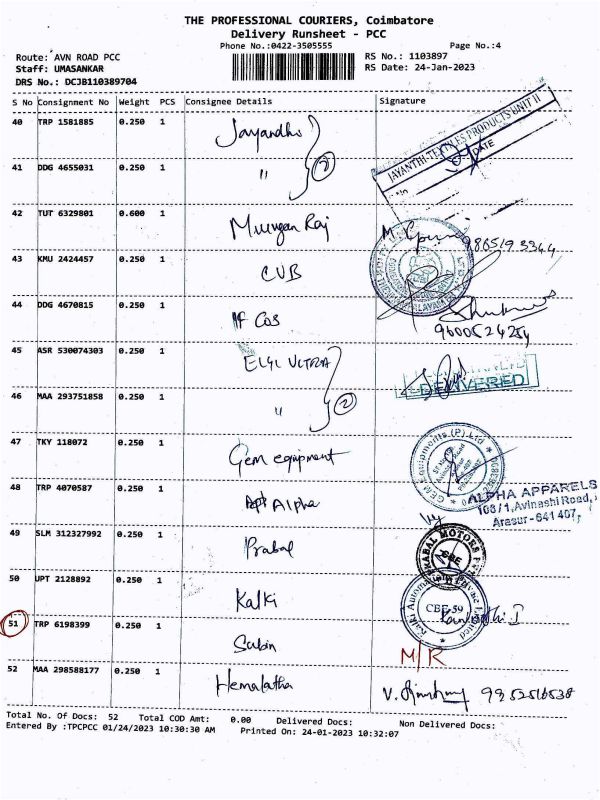 THE PROFESSIONAL COURIERS, Coimbatore
Delivery Runsheet - PCC
Phone No.:0422-3505555 Page No.:4
Route: AVN ROAD PCC RS No.: 1103897
Staff: UMASANKAR RS Date: 24-Jan-2023
DRS No.: DCJB110389704
S No Consignment No Weight PCS Consignee Details Signature
40 TRP 1581885 0.250 1 Jayandhi
JAYANTHI TEXTILES PRODUCTS UNIT II
DATE
41 DDG 4655031 0.250 1 " 2
42 TUT 6329801 0.600 1 Murugan Raj
43 KMU 2424457 0.250 1 CUB
44 DDG 4670815 0.250 1 Cos
9600524254
45 ASR 530074303 0.250 1 ELGI ULTRA
DELIVERED
46 MAA 293751858 0.250 1 " 2
47 TKY 118072 0.250 1 Gem equipment
GEM Equipments (P) Ltd
48 TRP 4070587 0.250 1 Alpha
ALPHA APPARELS
108/1, Avinashi Road,
Arasur - 641 407.
49 SLM 312327992 0.250 1 Prabal
PRABAL MOTORS
CBE
50 UPT 2128892 0.250 1 Kalki
CBE-59
51 TRP 6198399 0.250 1 Subin M/R
52 MAA 298588177 0.250 1 Hemalatha
Total No. Of Docs: 52 Total COD Amt: 0.00 Delivered Docs: Non Delivered Docs:
Entered By :TPCPCC 01/24/2023 10:30:30 AM Printed On: 24-01-2023 10:32:07